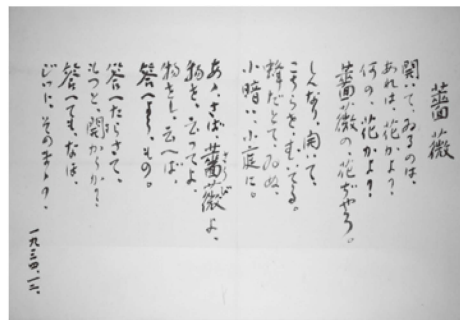 薔薇
開いて、ゐるのは、
あれは、花かよ?
何の、花かよ?
薔薇の花ぢやろ。
しんなり、開いて、
こちらを、向いてる。
蜂だとて、ゐぬ、
小暗い、小庭に。
あゝ、さば、薔薇よ、
さうび
物を、云つてよ、
物をし、云へば、
答へよう、もの。
答へたらさて、
もつと、開かうか?
答へても、なほ、
そのまゝ
一九三四、一二、